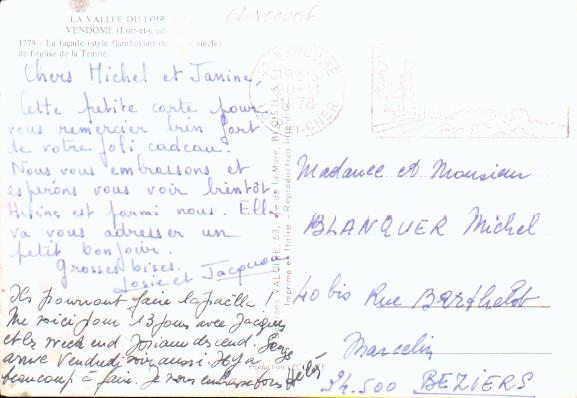 LA VALLÉE DU LOIR
VENDOME (Loir-et-
1779 - La façade (style flamboyant siècle)
de l'église de la Trinité.
Chers Michel et Janine,
Cette petite carte pour
vous remercier bien fort
de votre joli cadeau.
Nous vous embrassons et
espérons vous voir bientôt
Hélène est parmi nous. Elle
va vous adresser un
petit bonjour.
Grosses bises.
Josie et Jacques
Ils pourront faire la paëlla !
Me voici pour 13 jours avec Jacques
et le week end Josiane descend.
arrive Vendredi soir aussi. Il y a
beaucoup à faire. Je vous embrasse tous
19H15
20-11
1978
ET-CHER
VALOIRE, 63, rue de la Mare, BLOIS
Imprimé en Italie - Reproduction interdite
Production LECONTE
Madame et Monsieur
BLANQUER Michel
40 bis Rue Barthelot
Marcelin
34.500 BEZIERS